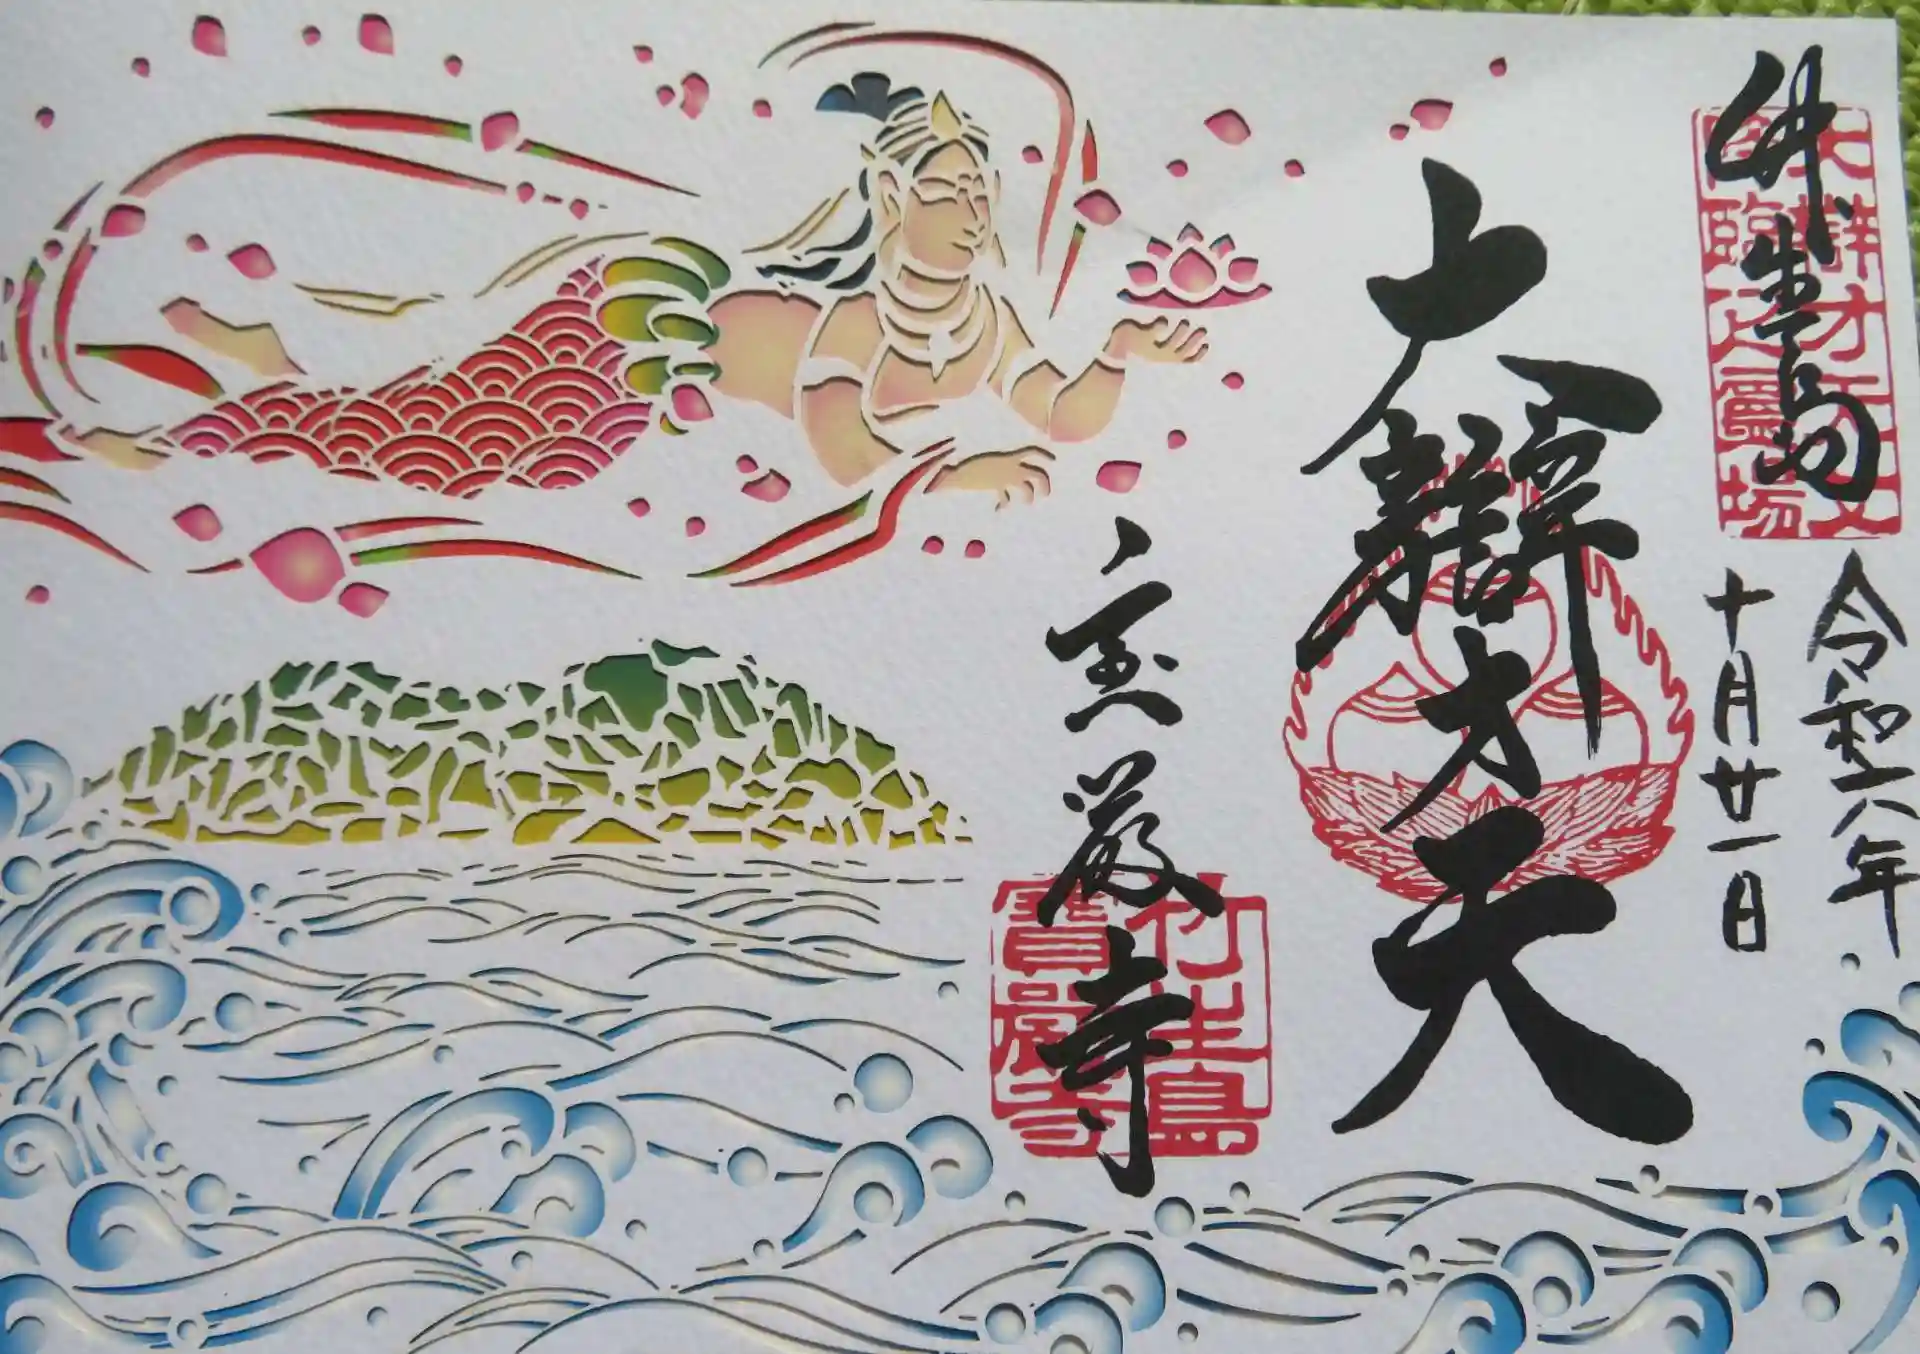 竹生島
大辨才天女
臨之靈場
令和六年
十月廿一日
大辯才天
宝厳寺
竹生島
寶嚴寺